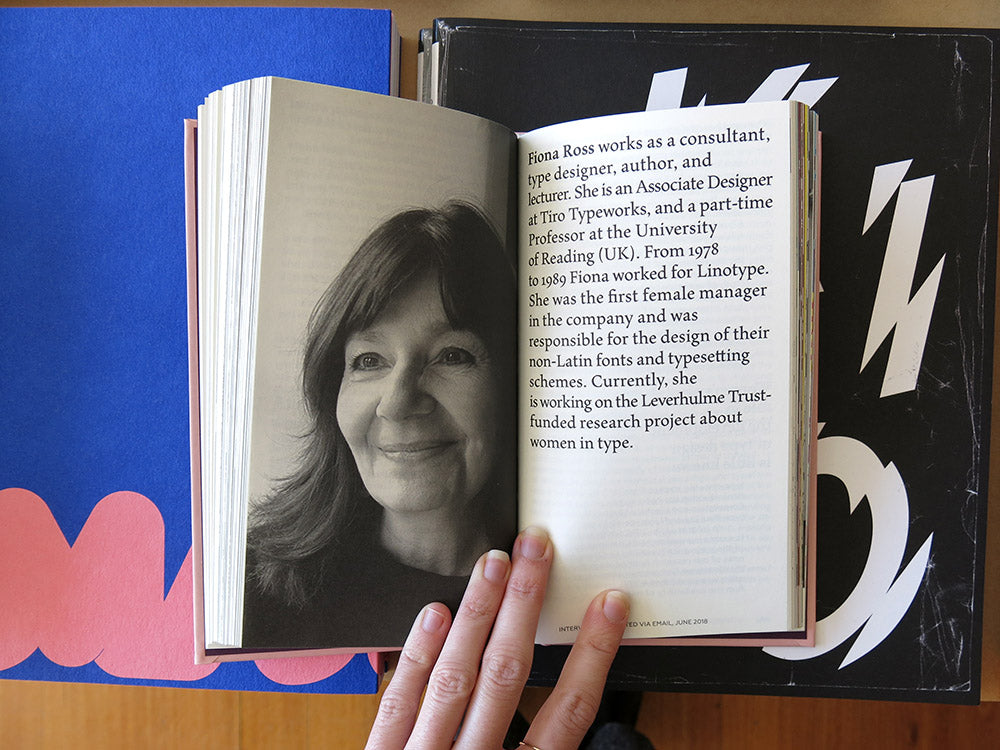 Fiona Ross works as a consultant,
type designer, author, and
lecturer. She is an Associate Designer
at Tiro Typeworks, and a part-time
Professor at the University
of Reading (UK). From 1978
to 1989 Fiona worked for Linotype.
She was the first female manager
in the company and was
responsible for the design of their
non-Latin fonts and typesetting
schemes. Currently, she
is working on the Leverhulme Trust-
funded research project about
women in type.
VIA EMAIL, JUNE 2018